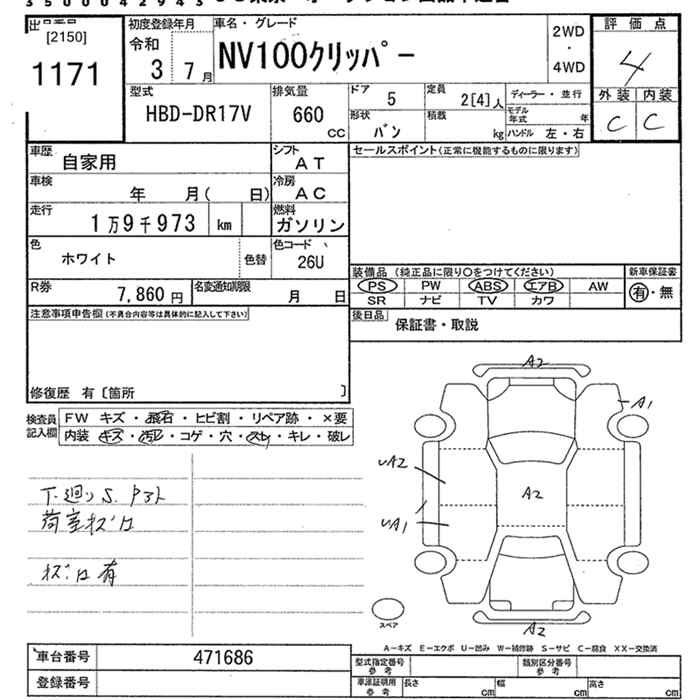 3500042943
出品番号
[2150]
1171
初度登録年月
令和
3 7月
車名・グレード
NV100クリッパー
2WD
・
4WD
評価点
4
外装 内装
C C
型式
HBD-DR17V
排気量
660
CC
ドア 5
定員 2[4]人
ディーラー・並行
形状 バン
積載 kg
モデル年式 年
ハンドル 左・右
車歴 自家用
シフト AT
セールスポイント(正常に機能するものに限ります)
車検 年 月( 日)
冷房 AC
走行 1万9千973 km
燃料 ガソリン
色 ホワイト 色替
色コード 26U
R券 7,860円
名変通知期限 月 日
装備品(純正品に限り○をつけてください)
新車保証書
PS PW ABS エアB AW
SR ナビ TV カワ
有・無
注意事項申告欄(不具合内容等は具体的に記入して下さい)
後日品 保証書・取説
修復歴 有〔箇所 〕
検査員記入欄
FW キズ・飛石・ヒビ割・リペア跡・×要
内装・キズ・汚レ・コゲ・穴・スレ・キレ・破レ
下廻りS.
荷室ネジ穴
ネジ穴有
A2
A1
UA2
A2
UA1
A2
スペア
A-キズ E-エクボ U-凹み W-補修跡 S-サビ C-腐食 XX-交換済
車台番号 471686
登録番号
型式指定番号参考
類別区分番号参考
車庫証明用参考
長さ cm 幅 cm 高さ cm